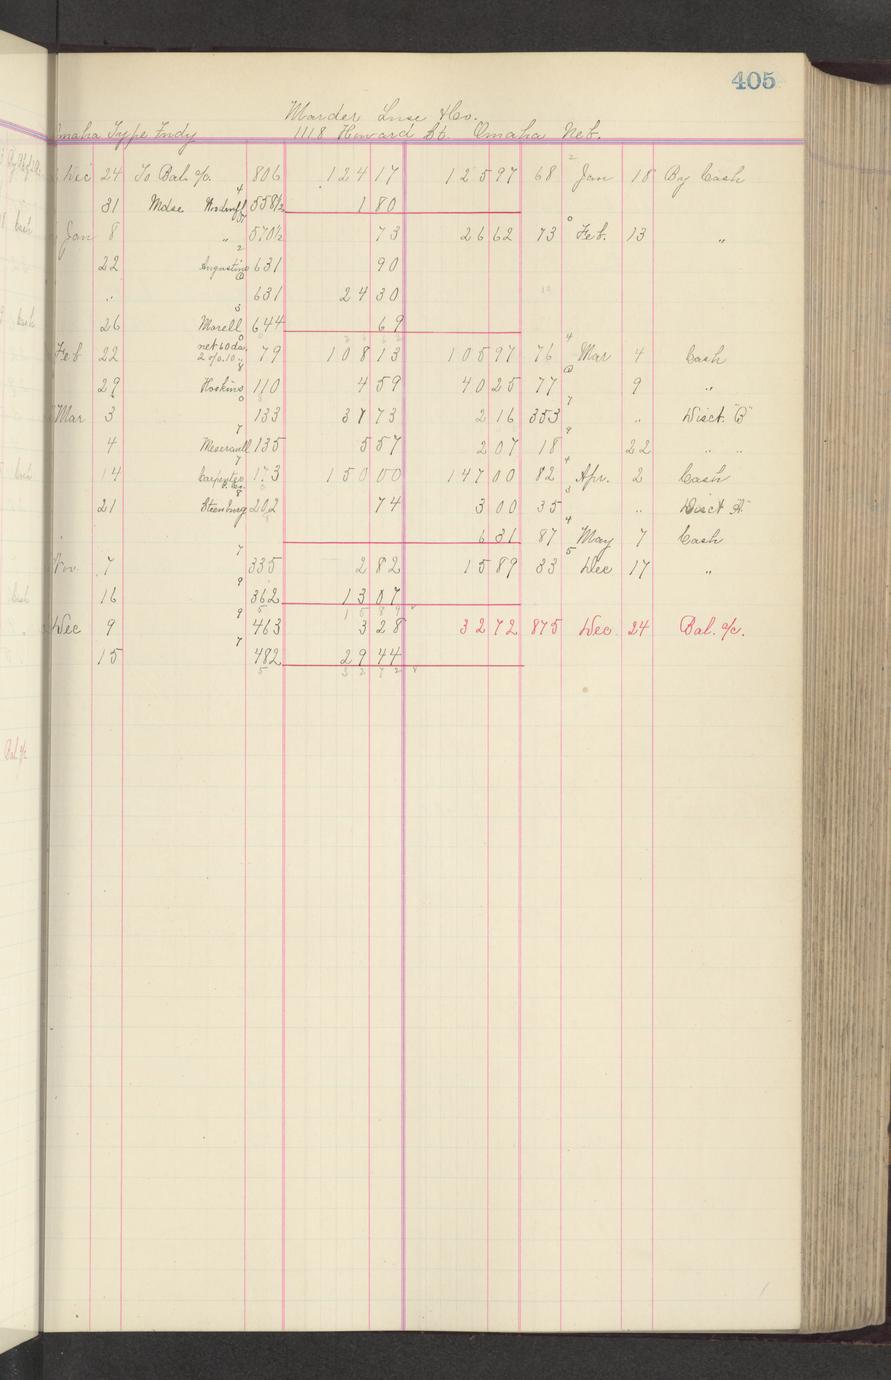 405
Marder Luse & Co.
Omaha Type Fndy 1118 Howard St. Omaha Neb.
Dec 24 To Bal. a/c. 806 124 17 125 97 68 2 Jan 18 By Cash
31 Mdse Woodruff 4 558½ 1 80
Jan 8 " 570½ 73 26 62 73 0 Feb. 13 "
22 Augustine 2 631 90
" 631 24 30
26 Morell 3 644 69
Feb 22 net 60 da. 2 % 10 " 0 79 108 13 105 97 76 4 Mar 4 Cash
29 Hoskins 8 110 4 59 40 25 77 9 "
Mar 3 0 133 37 73 2 16 353 7 " Disct. "B"
4 7 135 5 57 2 07 18 22 " "
14 Carpenter 7 173 150 00 147 00 82 4 Apr. 2 Cash
21 Steenburg 8 202 74 3 00 35 3 " Disct "A"
6 31 87 4 May 7 Cash
Nov. 7 7 335 2 82 15 89 33 5 Dec 17 "
16 9 362 13 07
15 89
Dec 9 9 463 3 28 32 72 875 Dec 24 Bal. a/c.
15 7 482 29 44
32 72